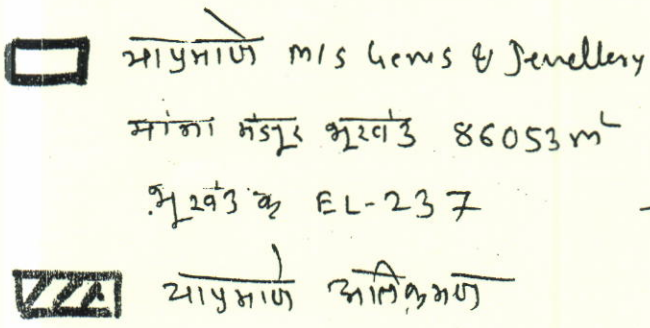 याप्रमाणे M/s Gems & Jewellery
यांना मंजूर भूखंड 86053 m²
भूखंड क्र EL-237
याप्रमाणे अतिक्रमण